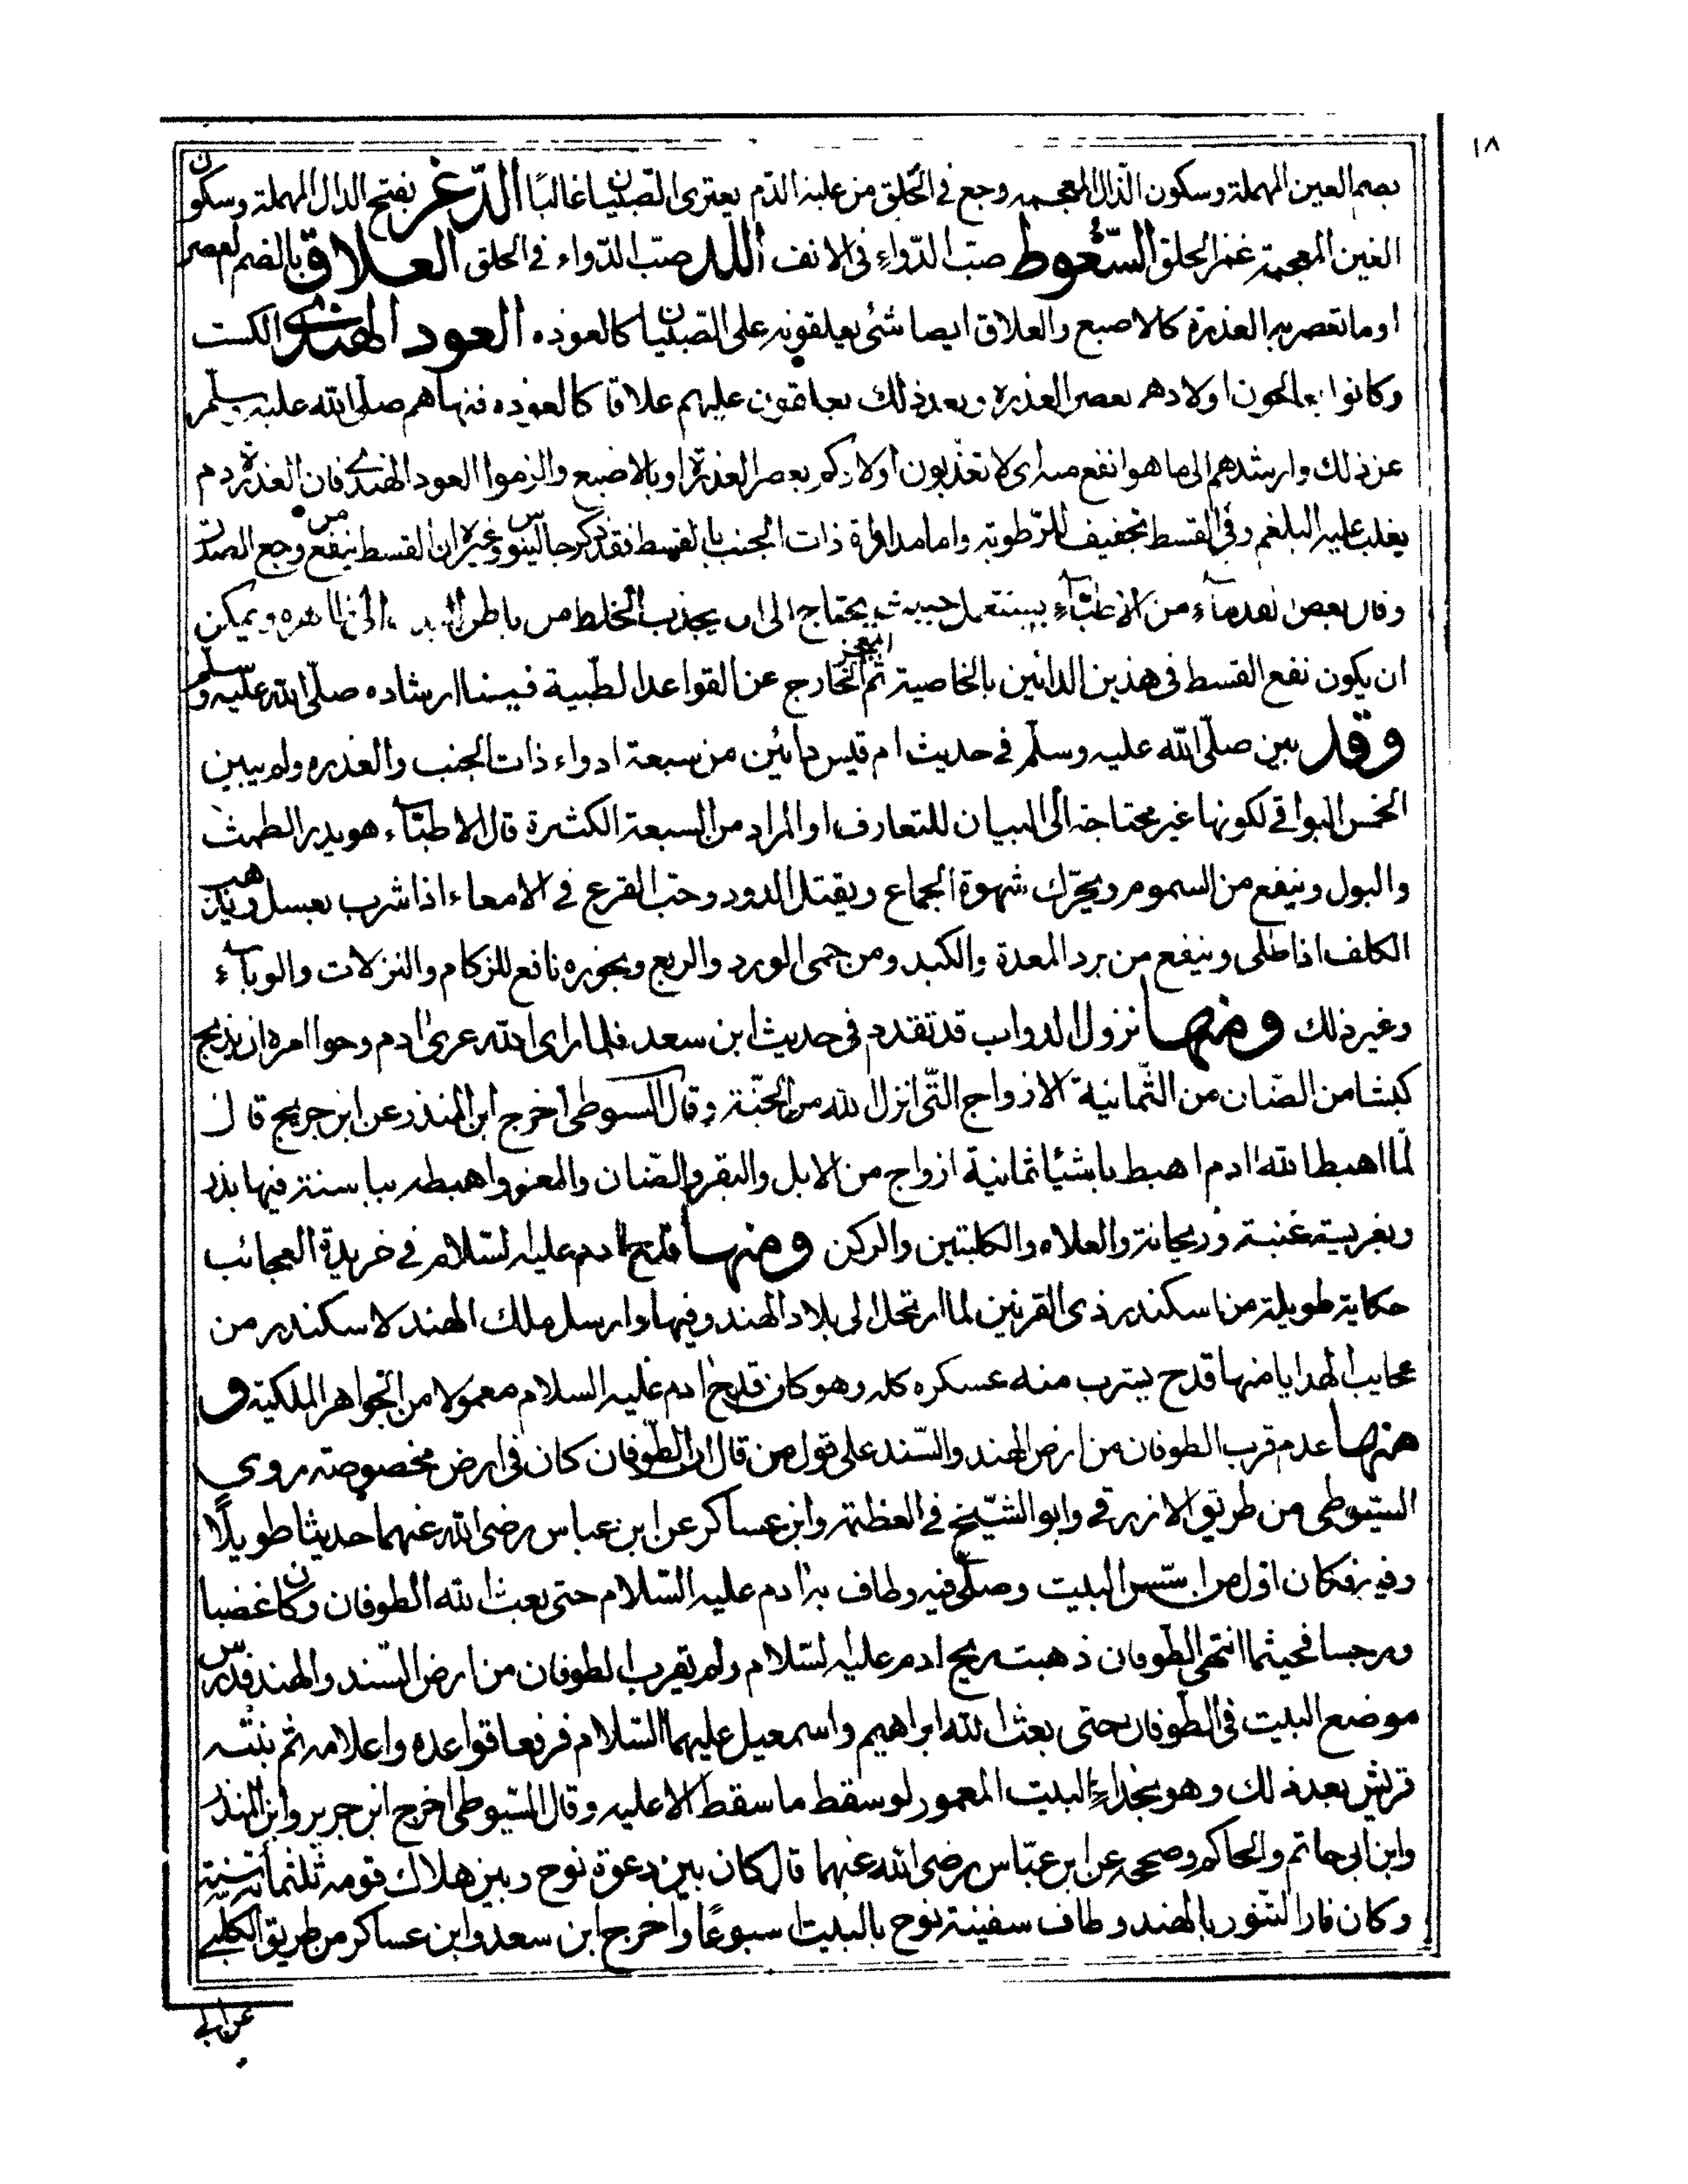 ١٨
بضم العين المهملة وسكون الذال المعجمه وجع في الحلق من غلبة الدّم يعترى الصبيان غالبًا الدّغر بفتح الدال المهملة وسكون
الغين المعجمة غمز الحلق السّعوط صبّ الدّواء في الانف اللد صبّ الدّواء في الحلق العلاق بالضم لعصر
او ما تعصر به العذرة كالاصبع والعلاق ايضا شئ يعلقونه على الصبيان كالعوذه العود الهندى الكست
وكانوا يعالجون اولادهم بعصر العذره وبعد ذلك يعلقون عليهم علاقا كالعوذه فنهاهم صلّى الله عليه وسلّم
عن ذلك وارشدهم الى ما هو انفع منه اى لا تعذّبون اولادكم بعصر العذرة او بالاصبع والزموا العود الهندى فان العذرة دم
يغلب عليه البلغم وفى القسط تجفيف للرّطوبة واما مداواة ذات الجنب بالقسط فقد ذكر جالينوس وغيره ان القسط ينفع من وجع الصدر
وقال بعض القدماء من الاطبّاء يستعمل حيث يحتاج الى ان يجذب الخلط من باطن البدن الى ظاهره ويمكن
ان يكون نفع القسط في هذين الدائين بالخاصية ثم المعجز الخارج عن القواعد الطّبية فبيننا ارشاده صلّى الله عليه وسلّم
وقد بين صلّى الله عليه وسلّم في حديث ام قيس دائين من سبعة ادواء ذات الجنب والعذره ولم يبين
الخمس البواقي لكونها غير محتاجة الى البيان للتعارف او المراد من السبعة الكثرة قال الاطبّاء هو يدر الطمث
والبول وينفع من السموم ويحرّك شهوة الجماع ويقتل الدود وحبّ القرع في الامعاء اذا شرب بعسل ويذهب
الكلف اذا طلى وينفع من برد المعدة والكبد ومن حمى الورد والربع وبخوره نافع للزكام والنزلات والوباء
وغير ذلك ومنها نزول الدواب قد تقدم في حديث ابن سعد فلما راى الله عرى ادم وحوا امره ان يذبح
كبشا من الضان من الثّمانية الازواج التّى انزل الله من الجنّة وقال السيوطى اخرج ابن المنذر عن ابن جريج قال
لمّا اهبط الله ادم اهبط باشيا ثمانية ازواج من الابل والبقر والضّان والمعز واهبطه بباسنة فيها بذر
وبغريسة عنبة وريحانة والعلاه والكلبتين والركن ومنها قدح ادم عليه السّلام في خريدة العجائب
حكاية طويلة من اسكندر ذى القرنين لما ارتحل الى بلاد الهند وفيها وارسل ملك الهند لاسكندر من
عجايب الهدايا منها قدح يشرب منه عسكره كله وهو كان قدح ادم عليه السلام معمولا من الجواهر الملكية و
منها عدم قرب الطوفان من ارض الهند والسّند على قول من قال ان الطّوفان كان في ارض مخصوصة روى
السيّوطى من طريق الازرقي وابو الشيّخ في العظمة وابن عساكر عن ابن عباس رضى الله عنهما حديثا طويلًا
وفيه فكان اوّل من اسّس البيت وصلّى فيه وطاف به ادم عليه السّلام حتى بعث الله الطوفان وكان غضبا
ورجسا فحيثما انتهى الطّوفان ذهبت ريح ادم عليه السّلام ولم يقرب الطوفان من ارض السّند والهند فدرس
موضع البيت في الطّوفان حتى بعث الله ابراهيم واسمعيل عليهما السّلام فرفعا قواعده واعلامه ثم بنته
قريش بعد ذلك وهو بحذاء البيت المعمور لو سقط ما سقط الا عليه وقال السّيوطى اخرج ابن جرير وابن المنذر
وابن ابى حاتم والحاكم وصححه عن ابن عبّاس رضى الله عنهما قال كان بين دعوة نوح وبين هلاك قومه ثلثمائة سنة
وكان فار التّنور بالهند وطاف سفينة نوح بالبيت اسبوعًا واخرج ابن سعد وابن عساكر من طريق الكلبي
عن ابى